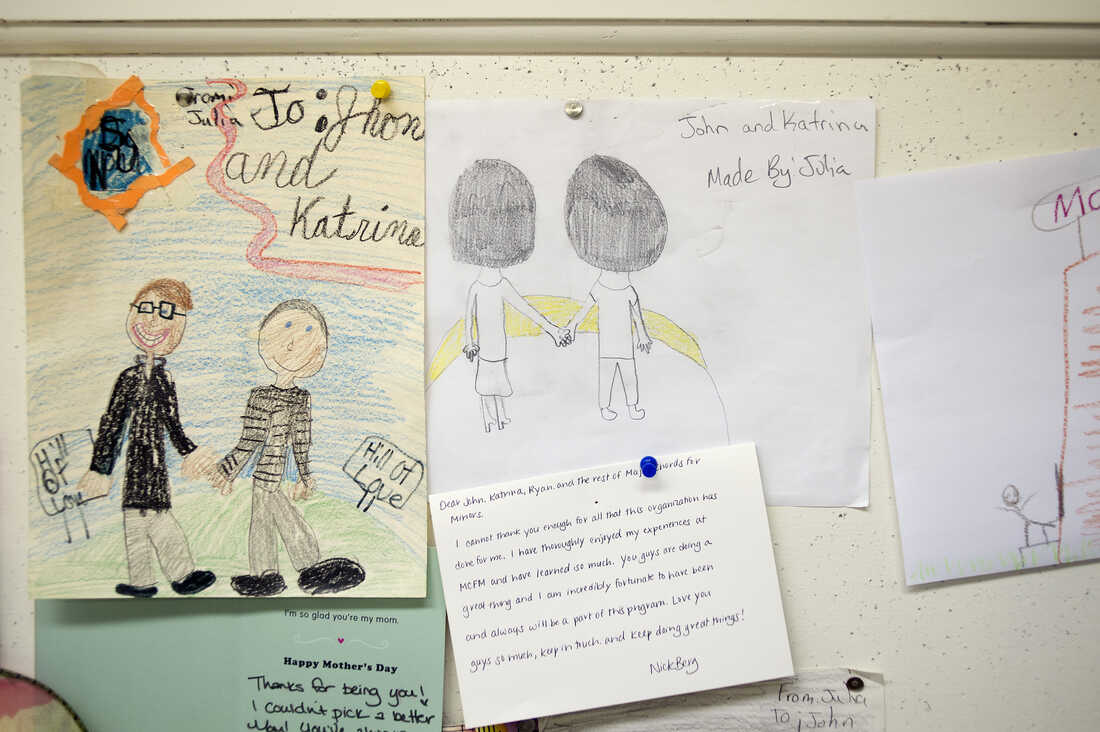 From:
Julia
To: Jhon
and
Katrina
Hill
of
Love
Hill of
Love
John and Katrina
Made By: Julia
Mo
Dear John, Katrina, Ryan. and the rest of Maj hords for
Minors.
I cannot thank you enough for all that this organization has
done for me. I have thoroughly enjoyed my experiences at
MCFM and have learned so much. You guys are doing a
great thing and I am incredibly fortunate to have been
and always will be a part of this program. Love you
guys so much, keep in touch. and keep doing great things!
Nick Berg
I'm so glad you're my mom.
Happy Mother's Day
Thanks for being you!
I couldn't pick a better
From: Julia
To: John